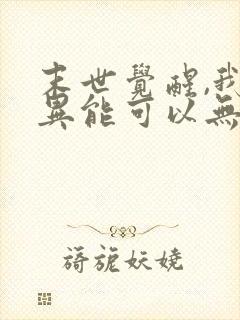 末世覺醒,我
異能可以無
旖旎妖嬈